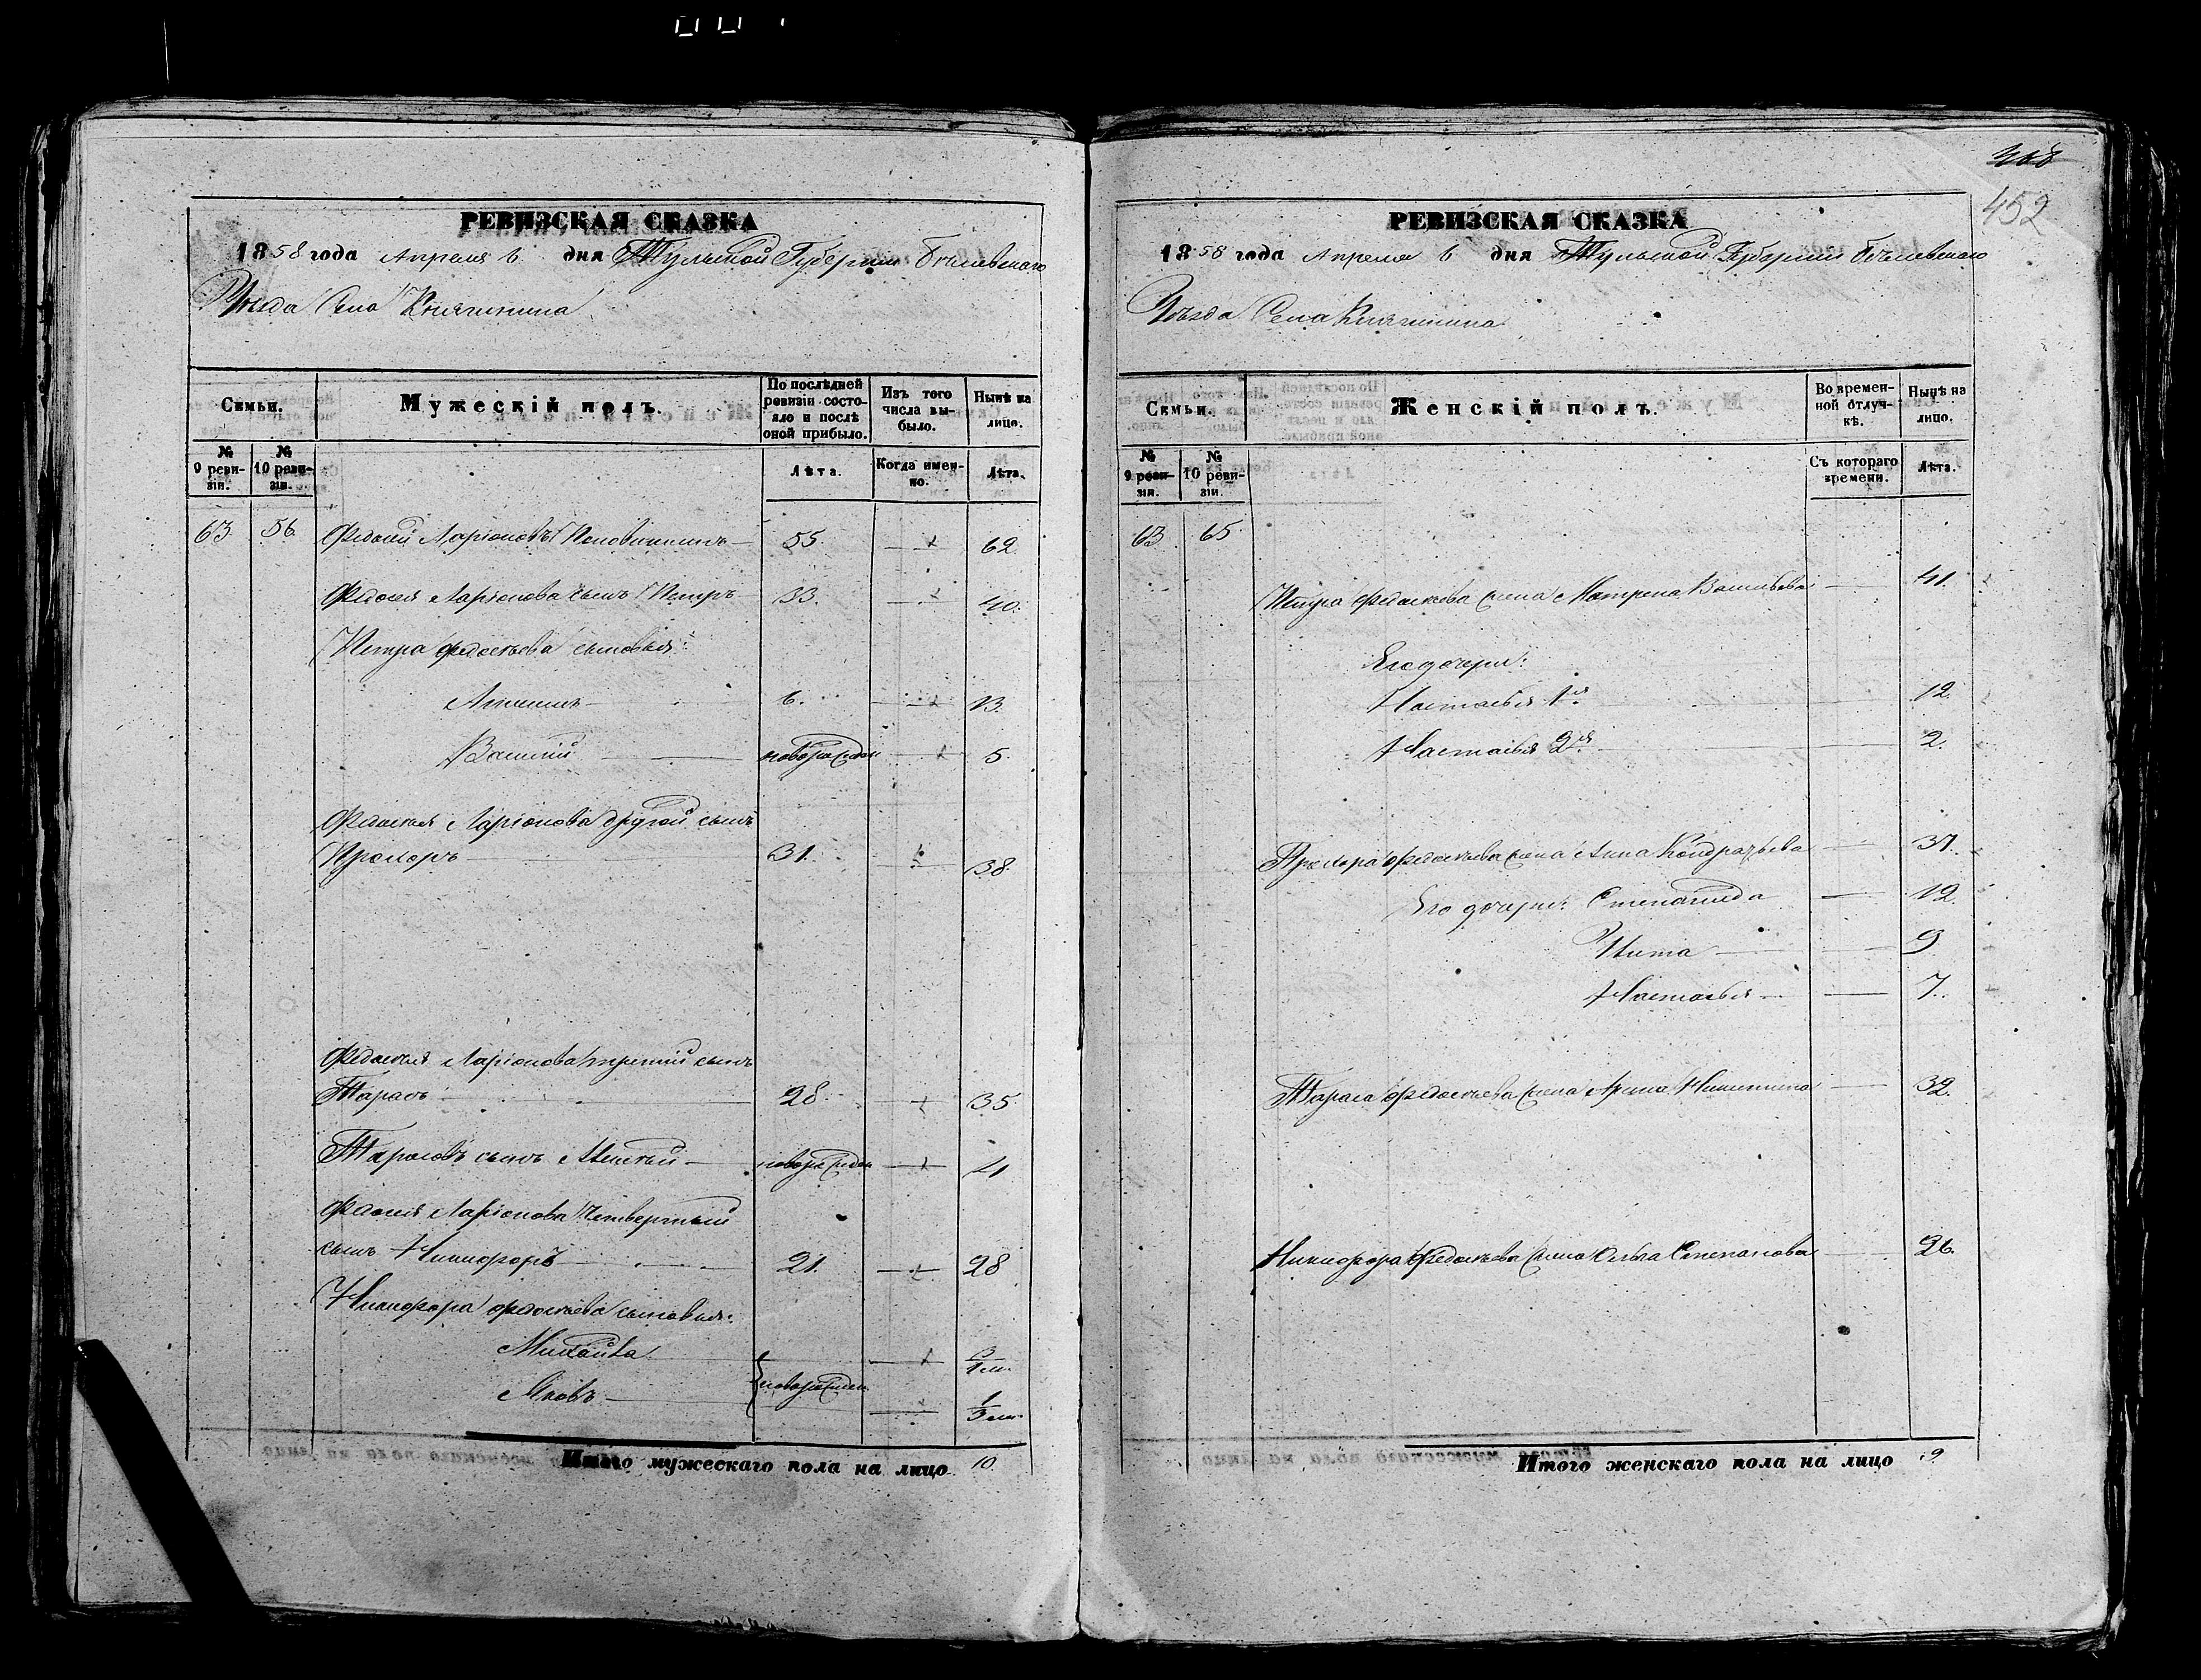 468
452
РЕВИЗСКАЯ СКАЗКА
1858 года Апреля 6 дня Тульской Губернии Бѣлевскаго
Уѣзда Села Княгинина
Семьи.
Мужескій полъ.
По послѣдней ревизіи состояло и послѣ оной прибыло.
Изъ того числа выбыло.
Нынѣ на лицо.
№ 9 ревизіи.
№ 10 ревизіи.
Лѣта.
Когда именно.
Лѣта.
63 56 Федосей Ларіоновъ 55. 62.
Федосея Ларіонова сынъ Петръ 33. 40.
Петра Федосѣева сыновья:
6. 13.
Василій новорожден 5.
Федосея Ларіонова другой сынъ
Прохоръ 31. 38.
Федосея Ларіонова третий сынъ
Тарасъ 28. 35.
Тарасовъ сынъ новорожден 4
Федосея Ларіонова четвертый
сынъ Никифоръ 21. 28
Никифора Федосѣева сыновья:
Михайла 3/1 м.
новорожден
Яковъ 1/3 м.
Итого мужескаго пола на лицо 10.
РЕВИЗСКАЯ СКАЗКА
1858 года Апреля 6 дня Тульской Губерніи Бѣлевскаго
Уѣзда Села Княгинина
Семьи.
Женскій полъ.
Во временной отлучкѣ.
Нынѣ на лицо.
№ 9 ревизіи.
№ 10 ревизіи.
Съ котораго времени.
Лѣта.
63 65
Петра Федосѣева жена Матрена Васильева 41.
Его дочери:
Настасья 1я 12.
Настасья 2я 2.
Прохора Федосѣева жена Анна Кондратьева 37.
Его дочери: Степанида 12.
9
Настасья 7.
Тараса Федосѣева жена Арина Никитина 32.
Никифора Федосѣева жена Ольга Степанова 26.
Итого женскаго пола на лицо 9.